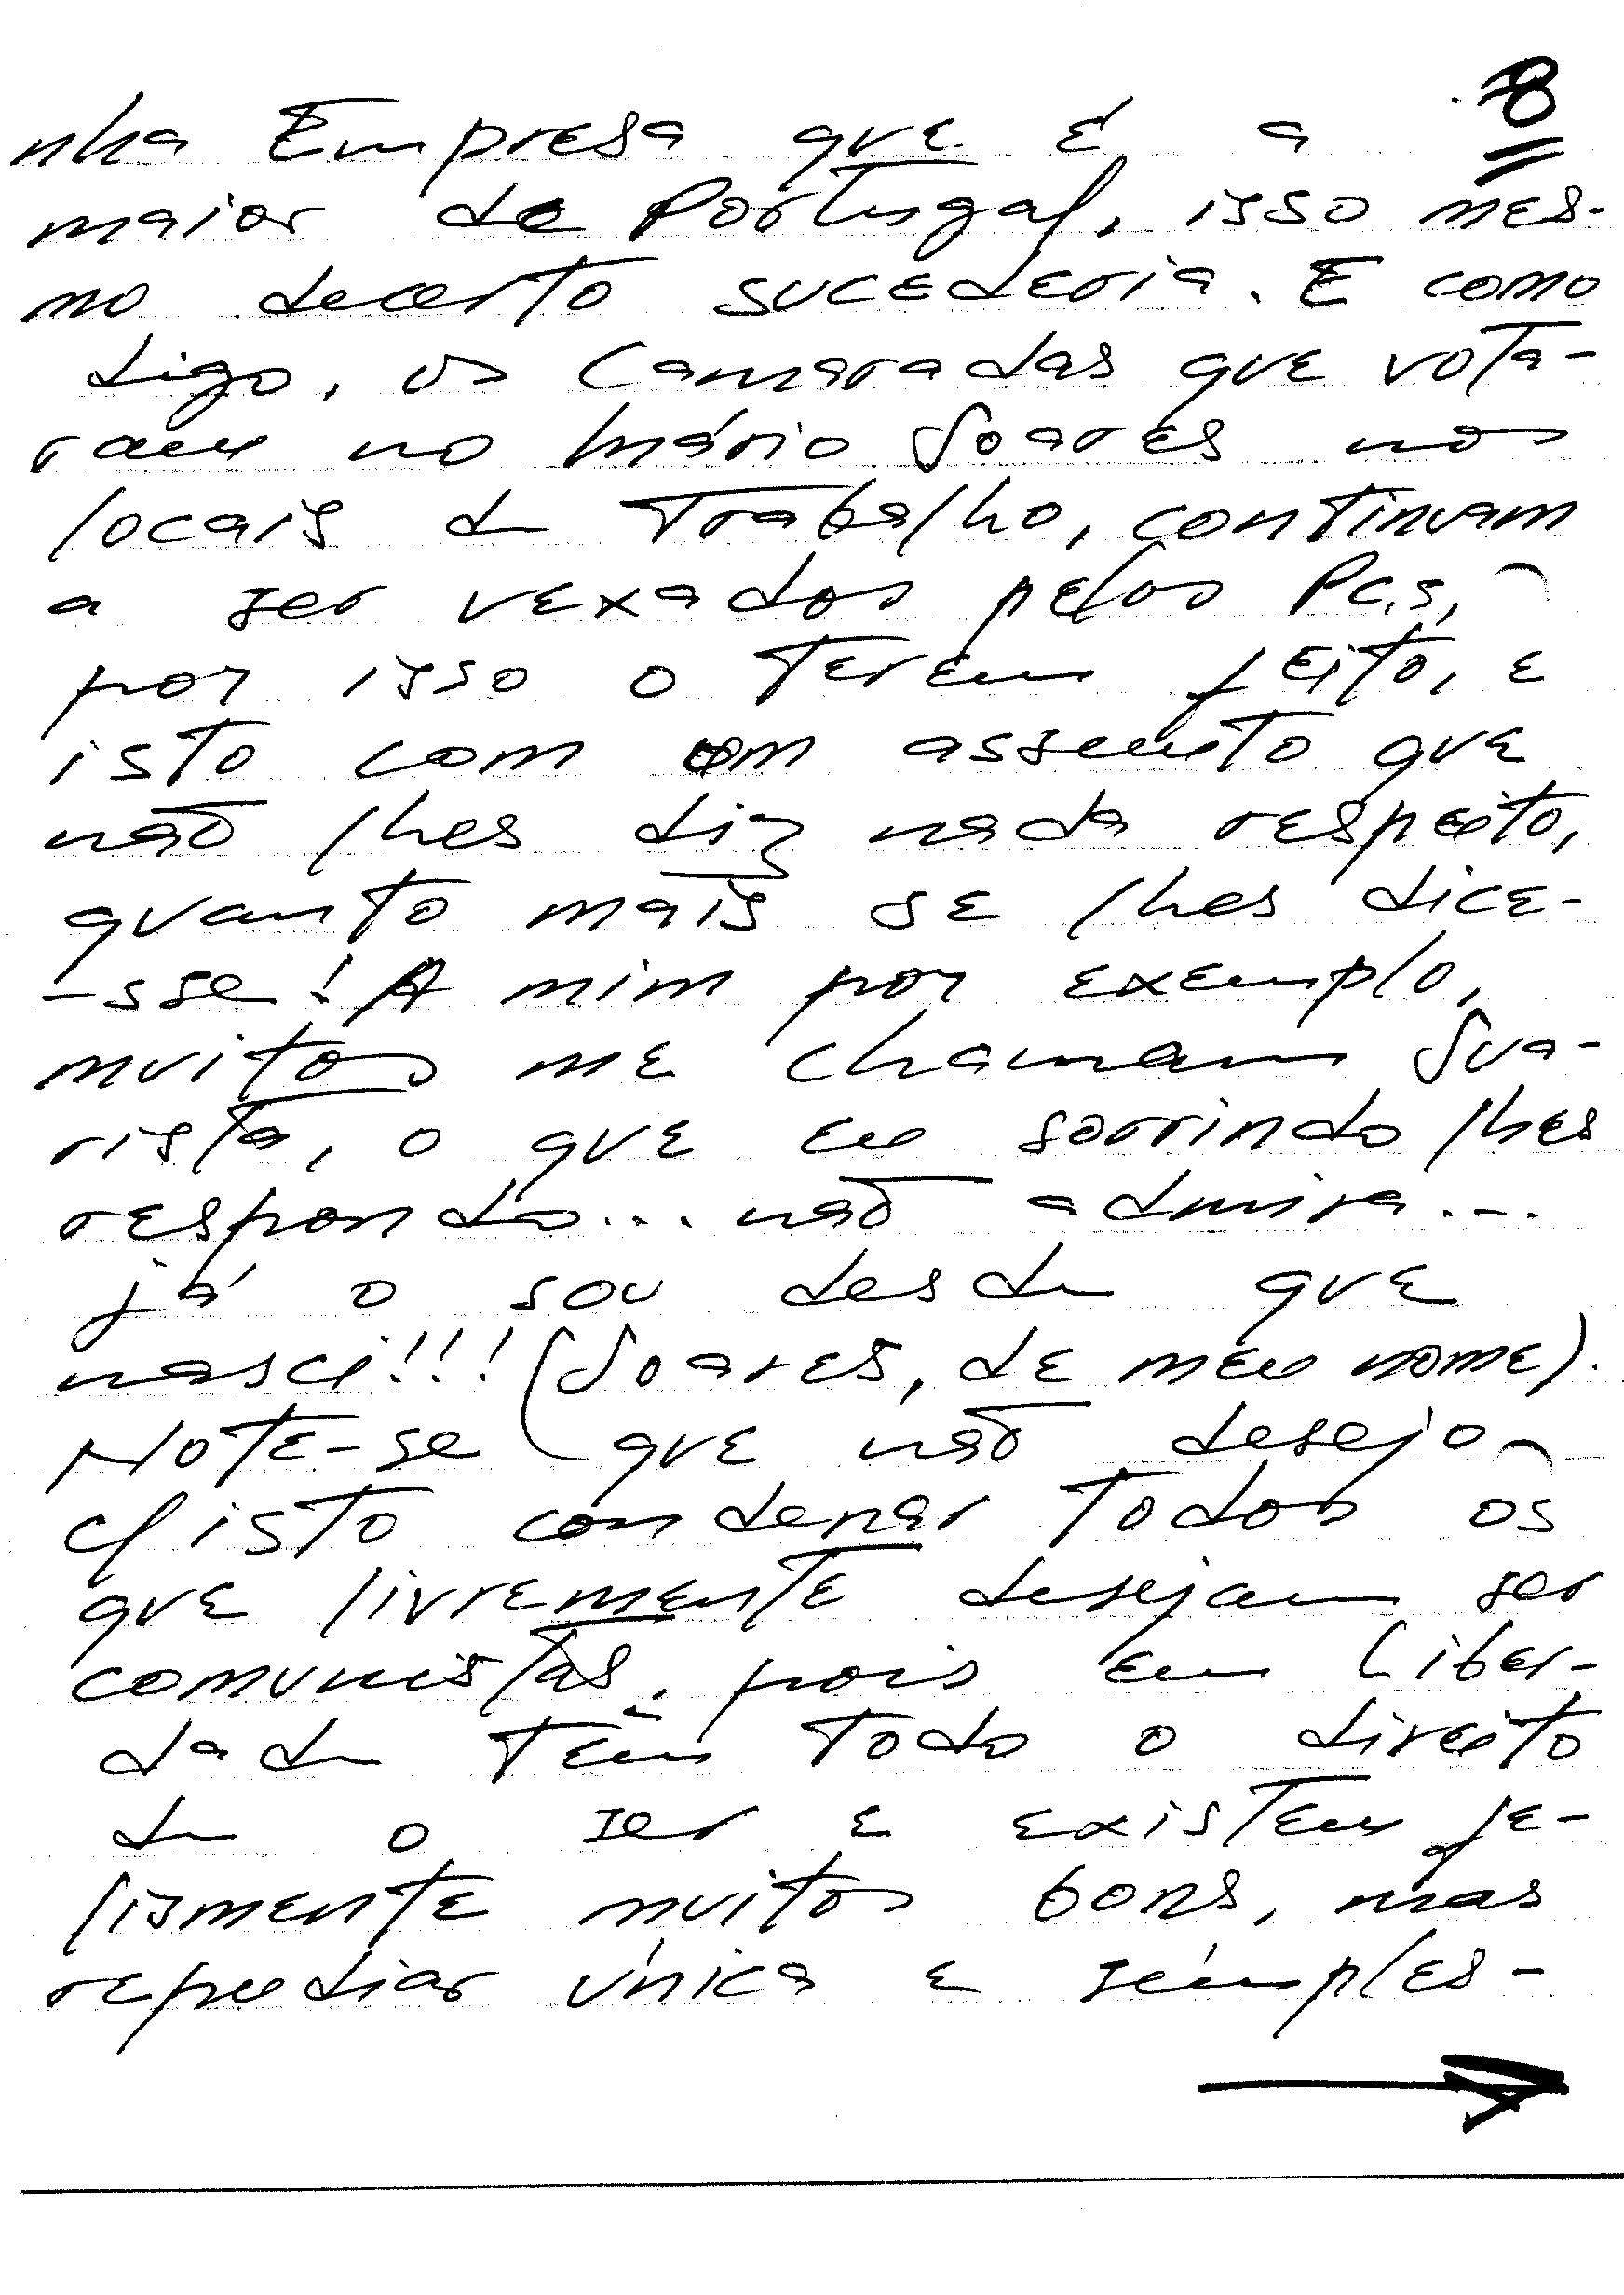 8
nha Empresa que é a
maior de Portugal, isso mes-
mo decerto sucederia. E como
digo, os Camaradas que vota-
ram no Mário Soares nos
locais de Trabalho, continuam
a ser vexados pelos Pc.s,
por isso o terem feito, e
isto com um assunto que
não lhes diz nada respeito,
quanto mais se lhes dice-
-sse! A mim por exemplo,
muitos me chamam Sua-
rista, o que eu sorrindo lhes
respondo... não admira...
já o sou desde que
nasci!!! (Soares, de meu nome).
Note-se que não desejo
c/ isto condenar todos os
que livremente desejam ser
comunistas, pois em Liber-
dade têm todo o direito
de o ser e existem fe-
lismente muitos bons, mas
repudiar única e símples-